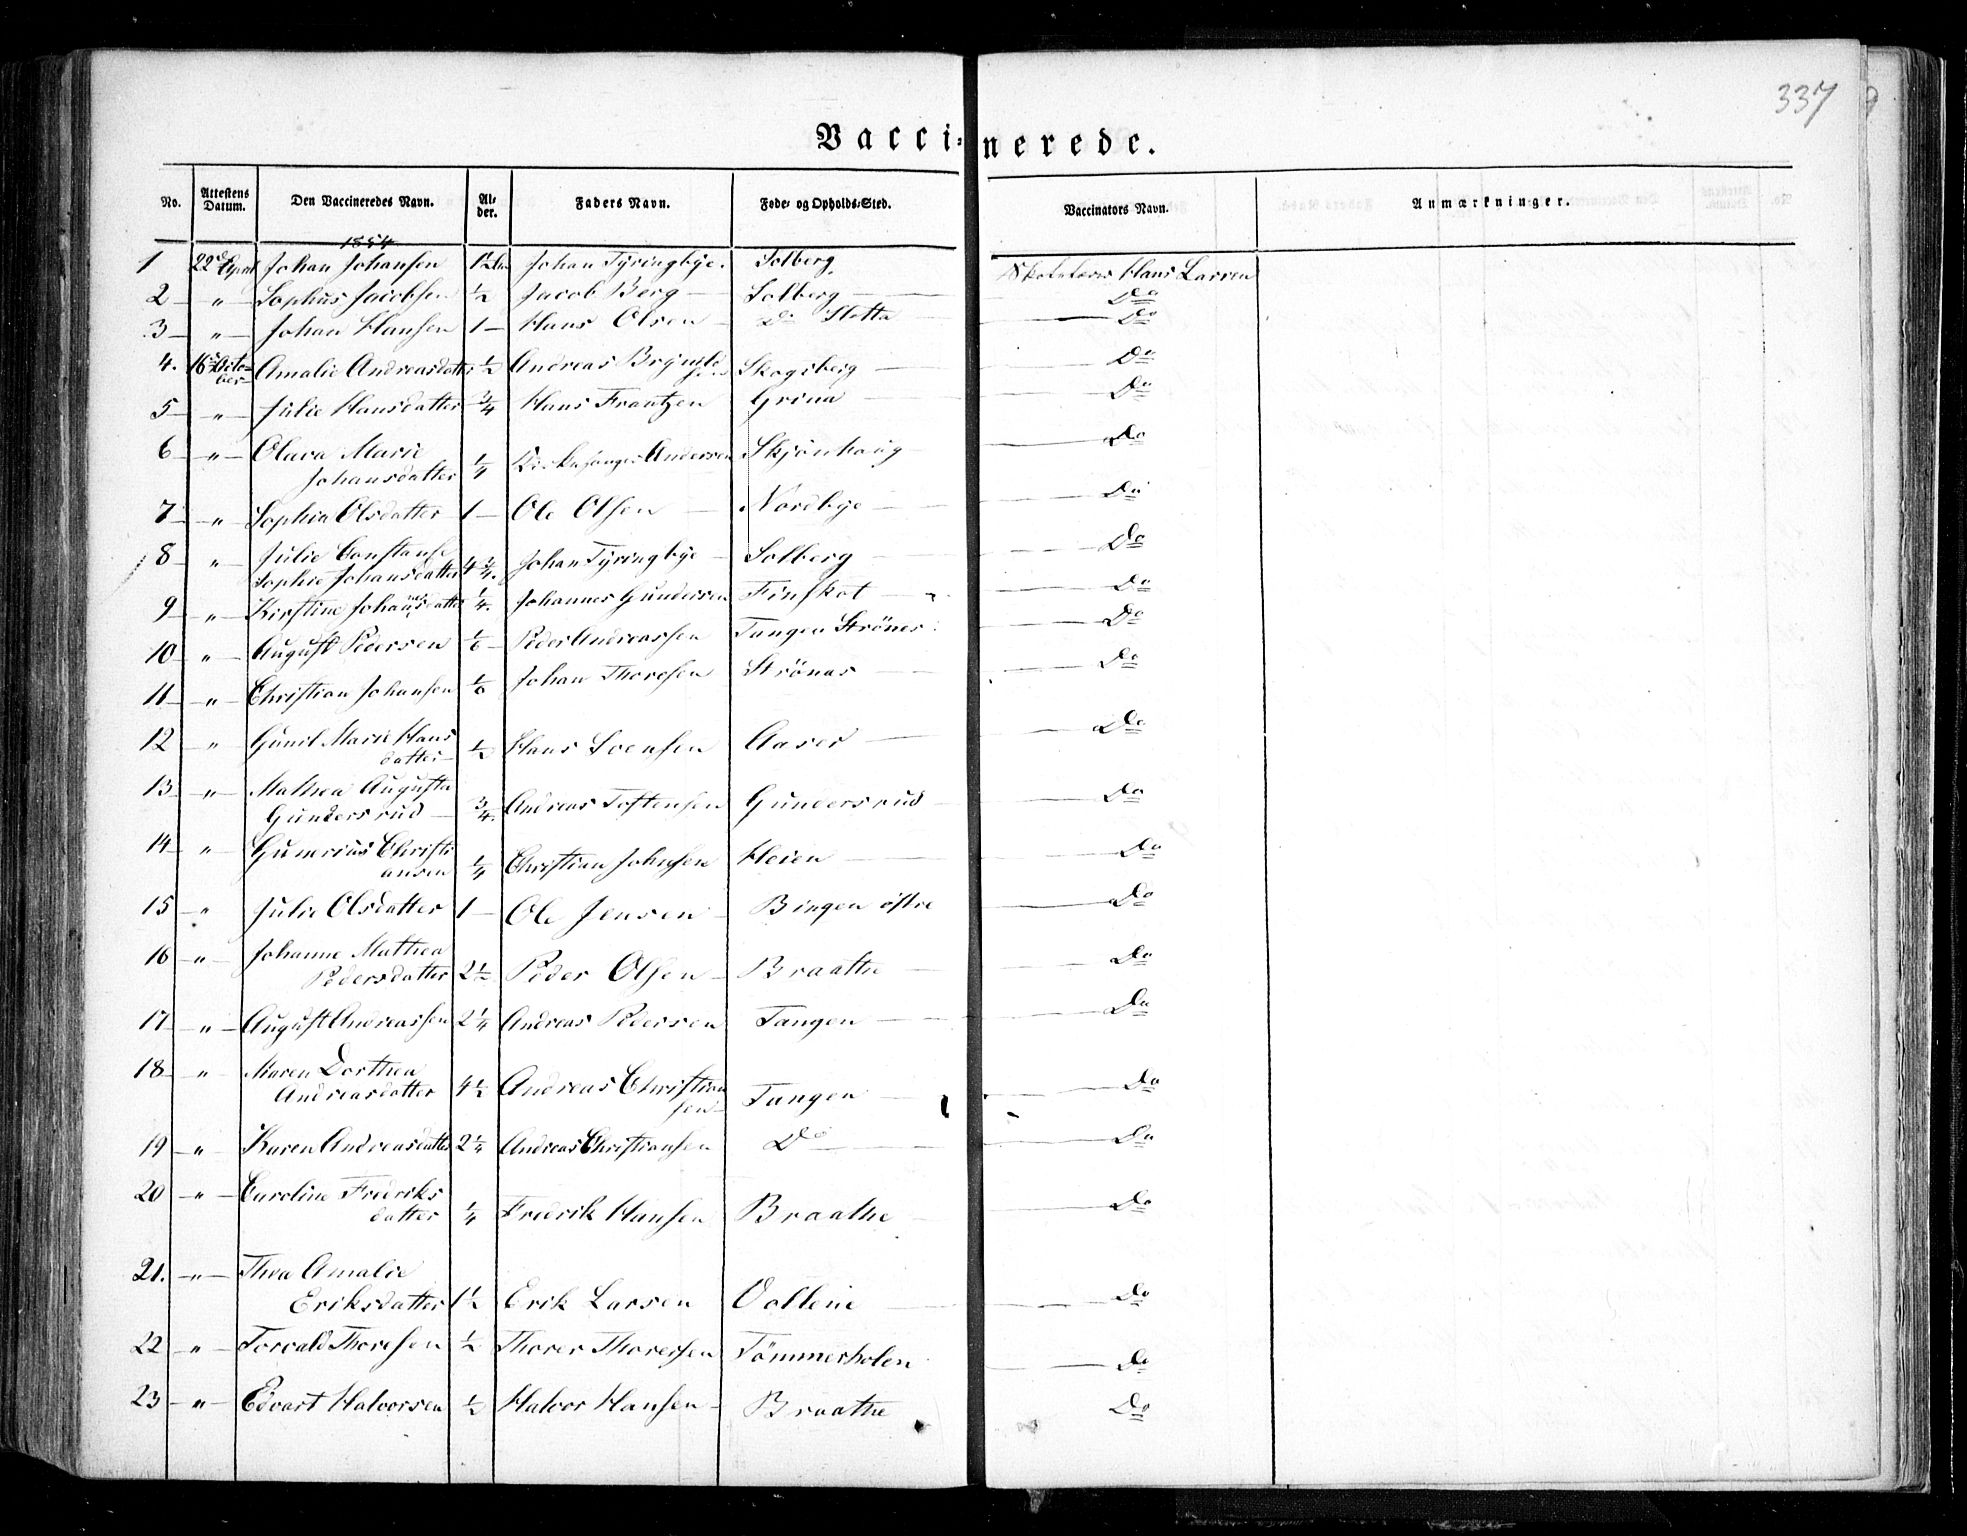 337
Vaccinerede.
No. Attestens Datum. Den Vaccineredes Navn. Alder. Faders Navn. Føde- og Opholds-Sted. Vaccinators Navn. Anmærkninger.
1854
1 22d April Johan Johansen 1½ Johan Tyringbye. Solberg Skolelærer Hans Larsen
2 — " — Sophus Jacobsen ½ Jacob Berg — Solberg — Do
3 — " — Johan Hansen 1 — Hans Olsen — Do Sletta — Do
4. 16 October Amalie Andreasdatter ½ Andreas Skogsberg — Do
5 — " — Julie Hansdatter ¾ Hans Frantzen Grina — Do
6 — " — Olava Marie
Johansdatter ¼ Kirkesanger Andersen Skjønhaug — Do
7 — " — Sophia Olsdatter 1 — Ole Olsen — Nordbye — Do
8 — " — Julie Constanse
Sophie Johansdatter 4¾. Johan Tyringbye — Solberg — Do
9 — " — Kirstine Johannesdatter ¼. Johannes Gundersen Finskot — Do
10 — " — August Pedersen 1/6 — Peder Andreassen Tangen Strönes — Do
11 — " — Christian Johansen 1/6 Johan Thoresen Strönas — Do
12 — " — Gunil Marie Hans
datter — ½ Hans Svensen Aaser — Do
13 — " — Mathea Augusta
Gundersrud — ¾. Andreas Toftensen Gundersrud — Do
14 — " — Gumerius Christi
ansen ¼ Christian Johnsen Heien — Do
15 — " Julie Olsdatter 1 — Ole Jensen — Bingen östre — Do
16 — " — Johanne Mathea
Pedersdatter 2½ Peder Olsen — Braathe — Do
17 — " — August Andreassen 2¼ Andreas Pedersen Tangen — Do
18 — " Maren Dorthea
Andreasdatter 4½ Andreas Christian
sen — Tangen — Do
19 — " — Karen Andreasdatter 2¼ Andreas Christiansen Do — Do
20 — " — Caroline Fredriks
datter ¼ Fredrik Hansen Braathe — Do
21. — " — Thea Amalie
Eriksdatter 1½ Erik Larsen Vollene — Do
22 — " — Torvald Thoresen ½ Thorer Thoresen Tömmerholen — Do
23 — " — Edvart Halvorsen ½ Halvor Hansen — Braathe — Do